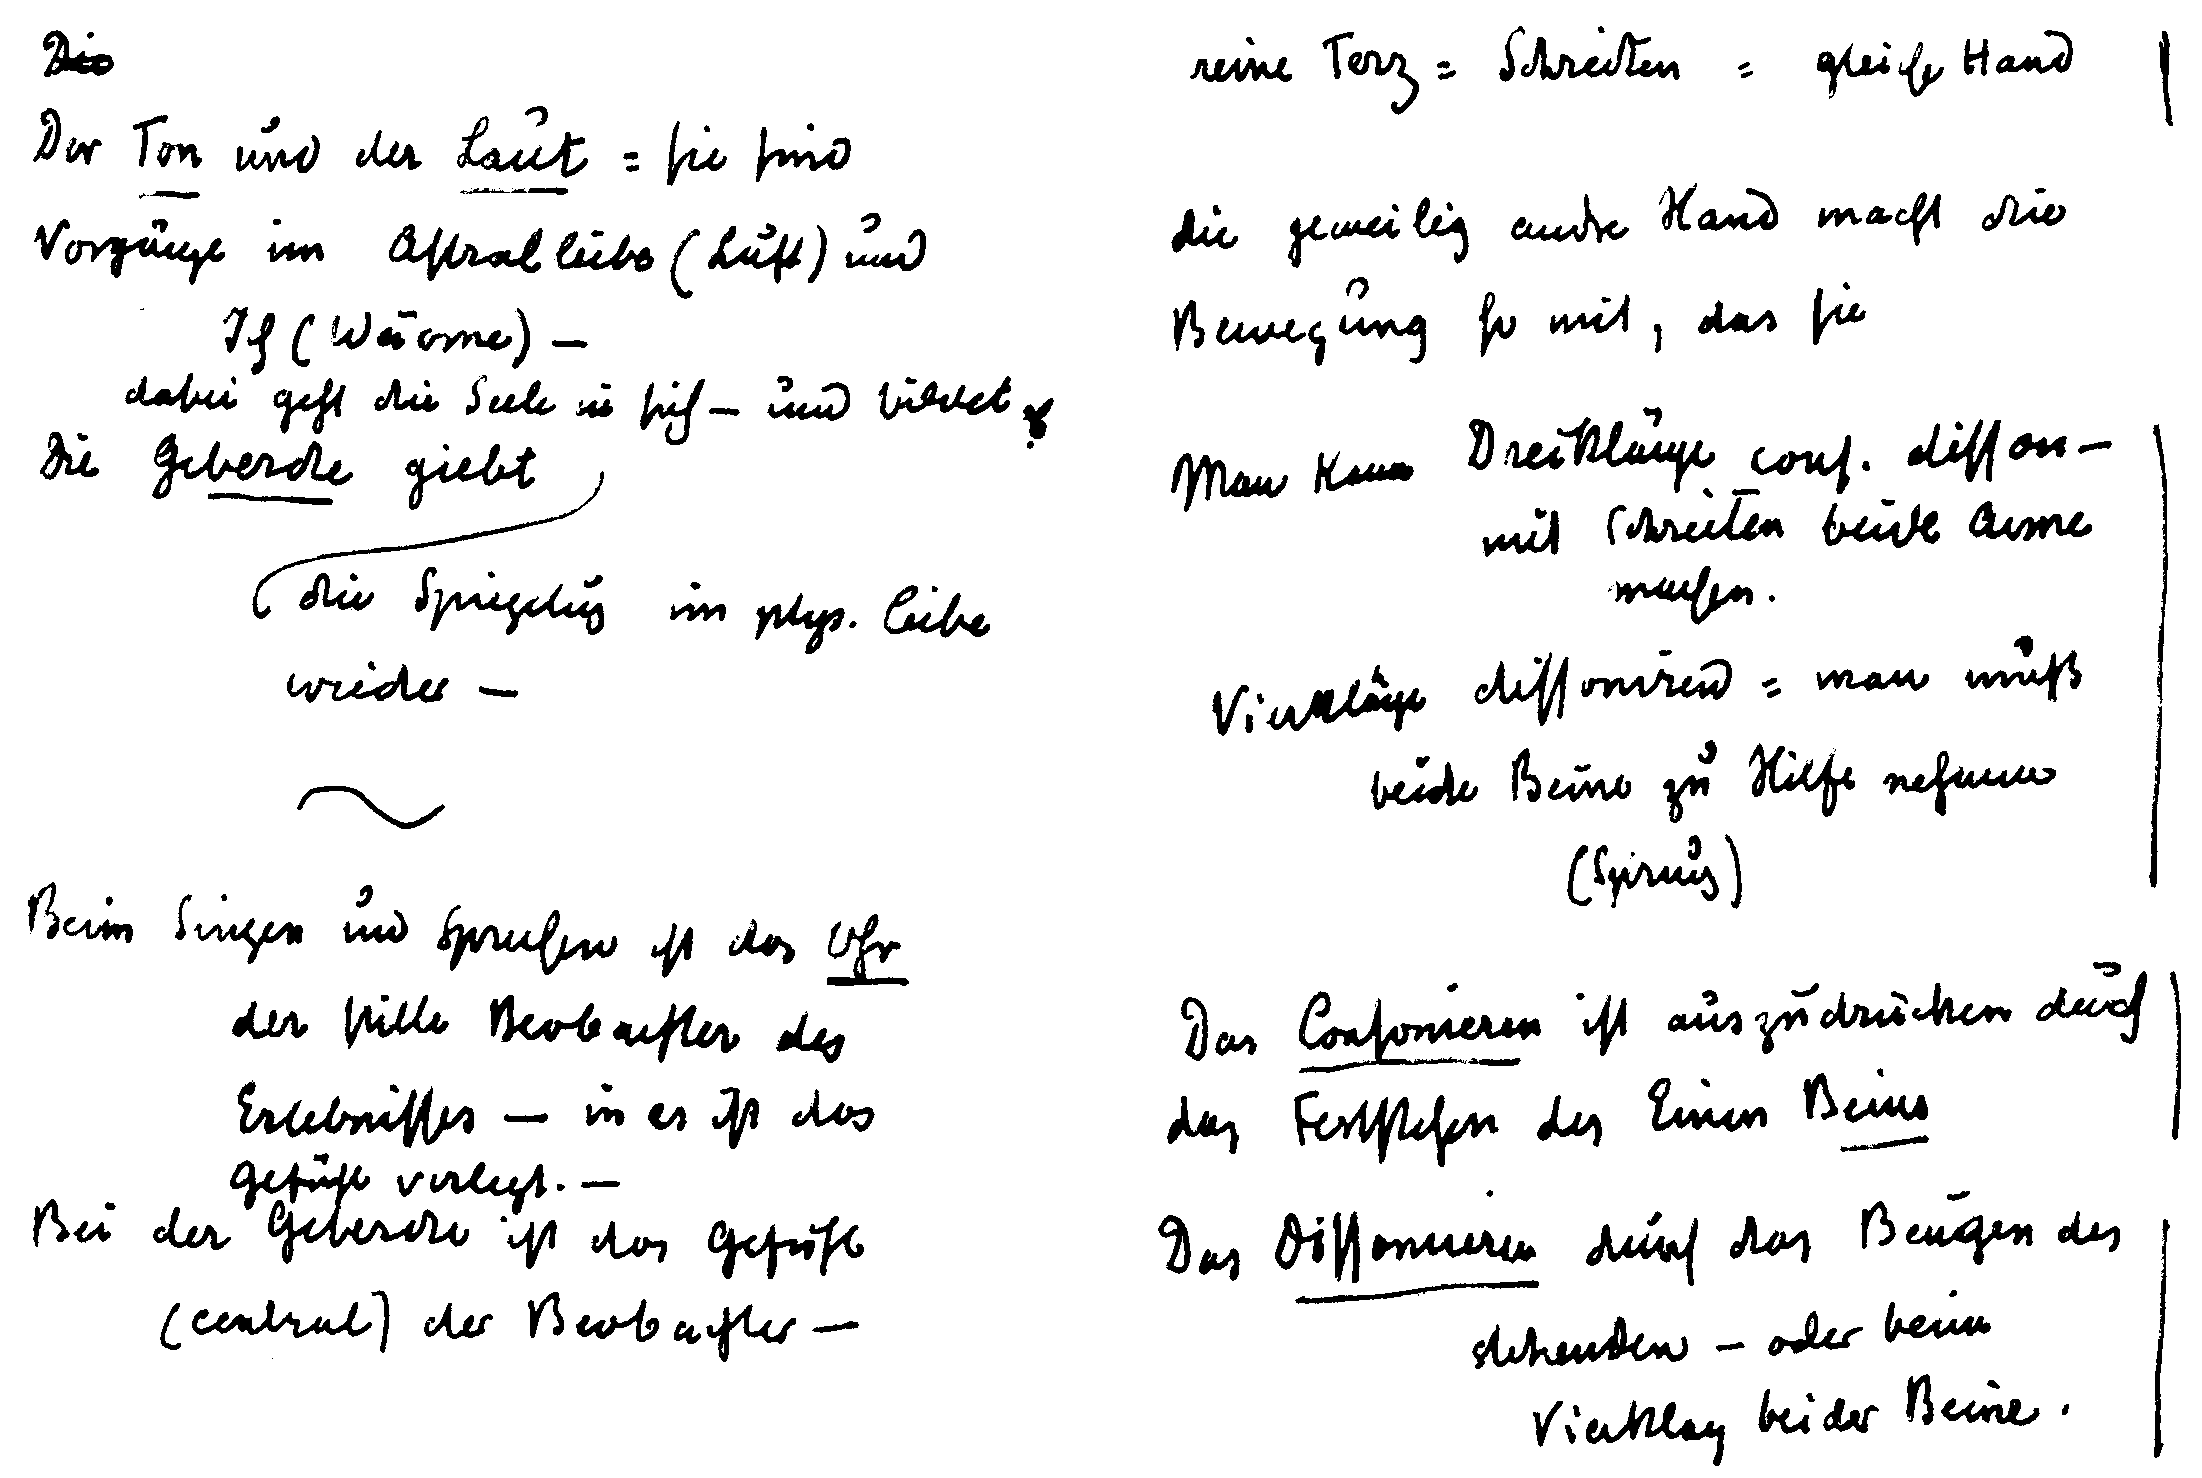 Die
Der Ton und der Laut = sie sind
Vorgänge im Astralleibe (Luft) und
Ich (Wärme) —
dabei geht die Seele in sich — und bildet
Die Geberde giebt
die Spiegelug im phys. Leibe
wieder —
Beim Singen und Sprechen ist das Ohr
der stille Beobachter des
Erlebnisses — in es ist das
Gefühl verlegt. —
Bei der Geberde ist das Gefühl
(central) der Beobachter —
reine Terz = Schreiten = gleiche Hand
die jeweilig andre Hand macht die
Bewegung so mit, das sie
Man kann Dreiklänge cons. disson —
mit Schreiten beide Arme
machen.
Vierkläge dissonirend = man muß
beide Beine zu Hilfe nehmen
(Sprung)
Das Consonieren ist auszudrücken durch
das Feststehen des Einen Beins
Das Dissonieren durch das Beugen des
stehenden — oder beim
Vierklag beider Beine.